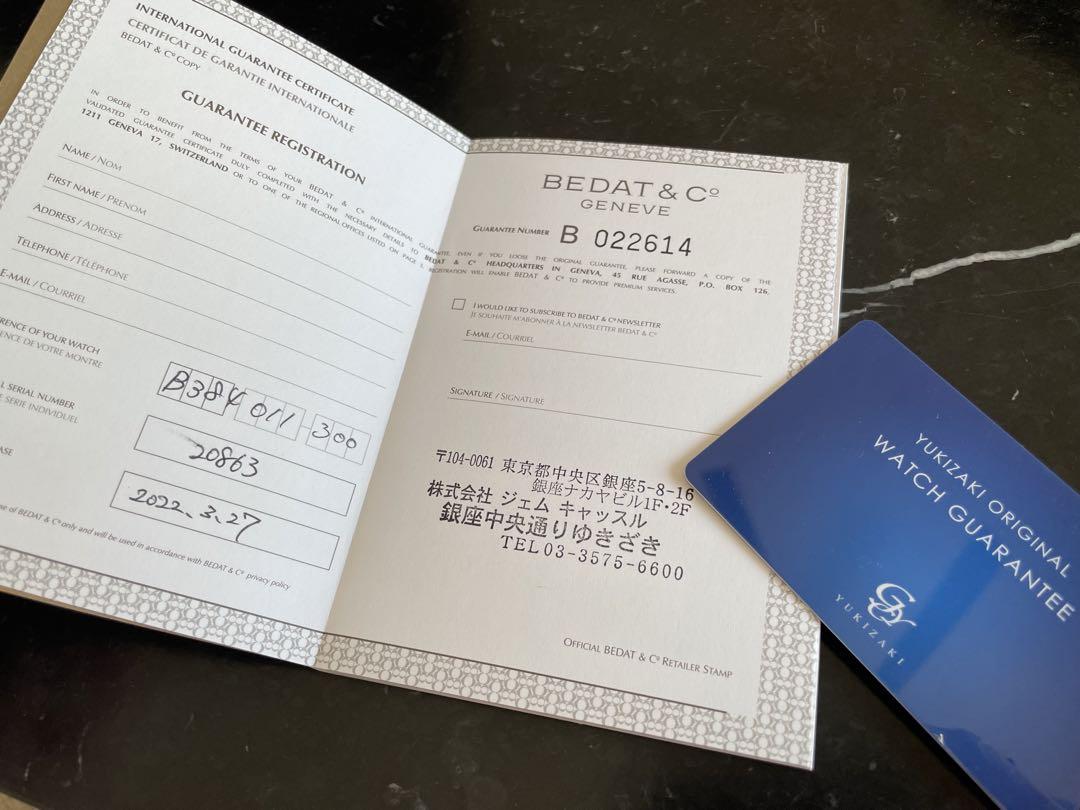 INTERNATIONAL GUARANTEE CERTIFICATE
CERTIFICAT DE GARANTIE INTERNATIONALE
BEDAT & Cº COPY
GUARANTEE REGISTRATION
IN ORDER TO BENEFIT FROM THE TERMS OF YOUR BEDAT & Cº INTERNATIONAL GUARANTEE, EVEN IF YOU LOOSE THE ORIGINAL GUARANTEE, PLEASE FORWARD A COPY OF THE
VALIDATED GUARANTEE CERTIFICATE DULY COMPLETED WITH THE NECESSARY DETAILS TO BEDAT & Cº HEADQUARTERS IN GENEVA, 45 RUE AGASSE, P.O. BOX 126,
1211 GENEVA 17, SWITZERLAND OR TO ONE OF THE REGIONAL OFFICES LISTED ON PAGE 5. REGISTRATION WILL ENABLE BEDAT & Cº TO PROVIDE PREMIUM SERVICES.
NAME / NOM
FIRST NAME / PRENOM
ADDRESS / ADRESSE
TELEPHONE / TÉLÉPHONE
E-MAIL / COURRIEL
ERENCE OF YOUR WATCH
ENCE DE VOTRE MONTRE
B384 011 - 300
L SERIAL NUMBER
E SERIE INDIVIDUEL
20863
ASE
2022.3.27
of BEDAT & Cº only and will be used in accordance with BEDAT & Cº privacy policy
BEDAT & Cº
GENEVE
GUARANTEE NUMBER B 022614
I WOULD LIKE TO SUBSCRIBE TO BEDAT & Cº NEWSLETTER
JE SOUHAITE M'ABONNER À LA NEWSLETTER BEDAT & Cº
E-MAIL / COURRIEL
SIGNATURE / SIGNATURE
〒104-0061 東京都中央区銀座5-8-16
銀座ナカヤビル1F・2F
株式会社 ジェム キャッスル
銀座中央通りゆきざき
TEL 03-3575-6600
OFFICIAL BEDAT & Cº RETAILER STAMP
YUKIZAKI ORIGINAL
WATCH GUARANTEE
YUKIZAKI